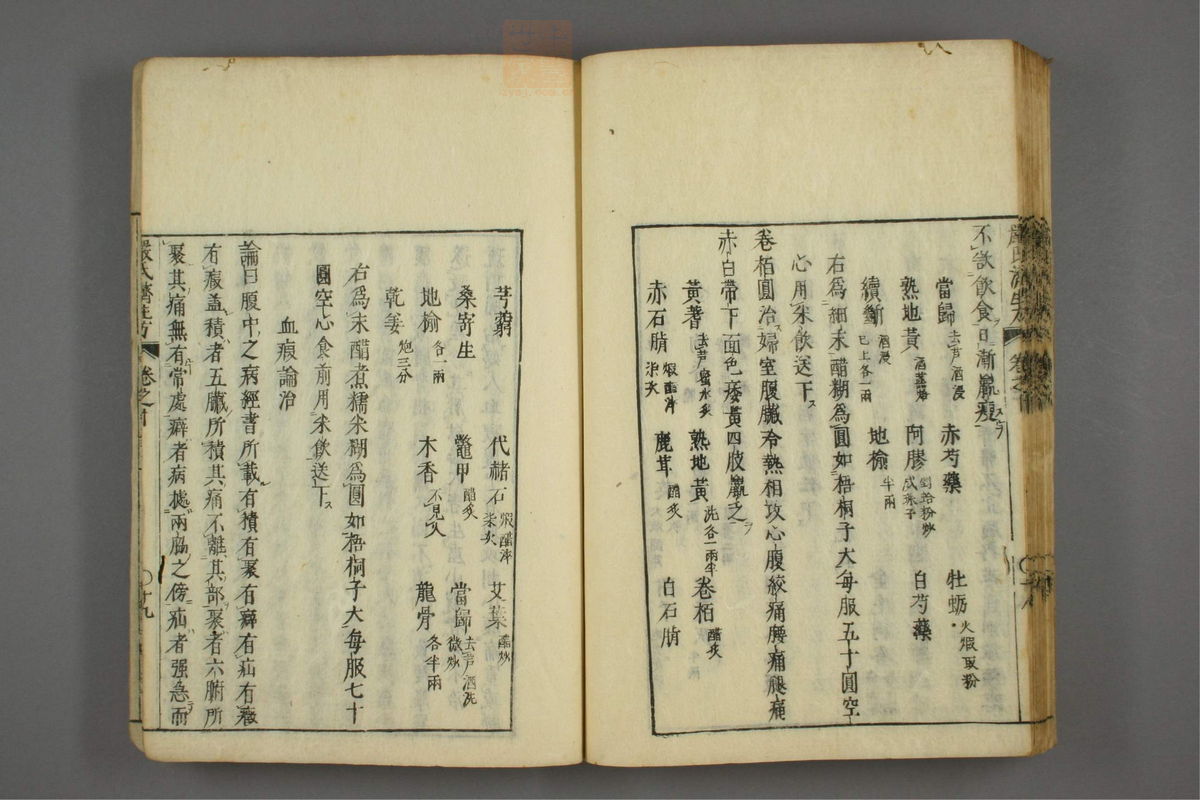 不欲飲食日漸羸瘦
當歸 去芦酒浸 赤芍藥 牡蛎 火煆取粉
熟地黄 酒蒸焙 阿膠 剉蛤粉炒成珠子 白芍藥
續斷 酒浸已上各一兩 地楡 半兩
右爲細末醋糊爲圓如梧桐子大每服五十圓空
心用米飲送下
卷栢圓治婦室腹臟冷熱相攻心腹絞痛腰痛腿痛
赤白帶下面色痿黄四肢羸乏
黄蓍 去芦蜜水炙 熟地黄 洗各一兩半 卷栢 醋炙
赤石脂 煆醋淬 鹿茸 醋炙 白石脂
芎藭 代赭石 煆醋淬 艾葉 醋炒
桑寄生 鼈甲 醋炙 當歸 去芦酒洗微炒
地楡 各一兩 木香 不見火 龍骨 各半兩
乾姜 炮三分
右爲末醋煮糯米糊爲圓如梧桐子大每服七十
圓空心食前用米飲送下
血瘕論治
論曰腹中之病經書所載有積有聚有癖有疝有
有瘕蓋積者五臟所積其痛不離其部聚者六腑所
聚其痛無有常處癖者病據兩脇之傍疝者强急而
嚴氏濟生方 卷之 十九